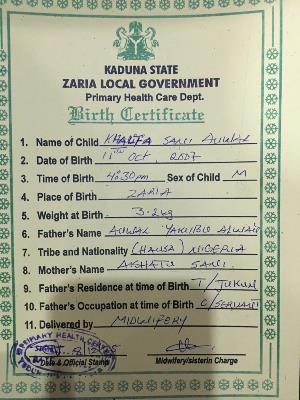 KADUNA STATE
ZARIA LOCAL GOVERNMENT
Primary Health Care Dept.
Birth Certificate
1. Name of Child KHALIFA SANI AUWAL
2. Date of Birth 11TH Oct, 2007
3. Time of Birth 4:30pm Sex of Child M
4. Place of Birth ZARIA
5. Weight at Birth 3.2kg
6. Father's Name AUWAL YAKUBU
7. Tribe and Nationality (HAUSA) NIGERIA
8. Mother's Name SANI
9. Father's Residence at time of Birth T/JUKUN
10. Father's Occupation at time of Birth C/SERVANT
11. Delivered by MIDWIFERY
PRIMARY HEALTH
Date & Official Stamp Midwifery/sisterin Charge